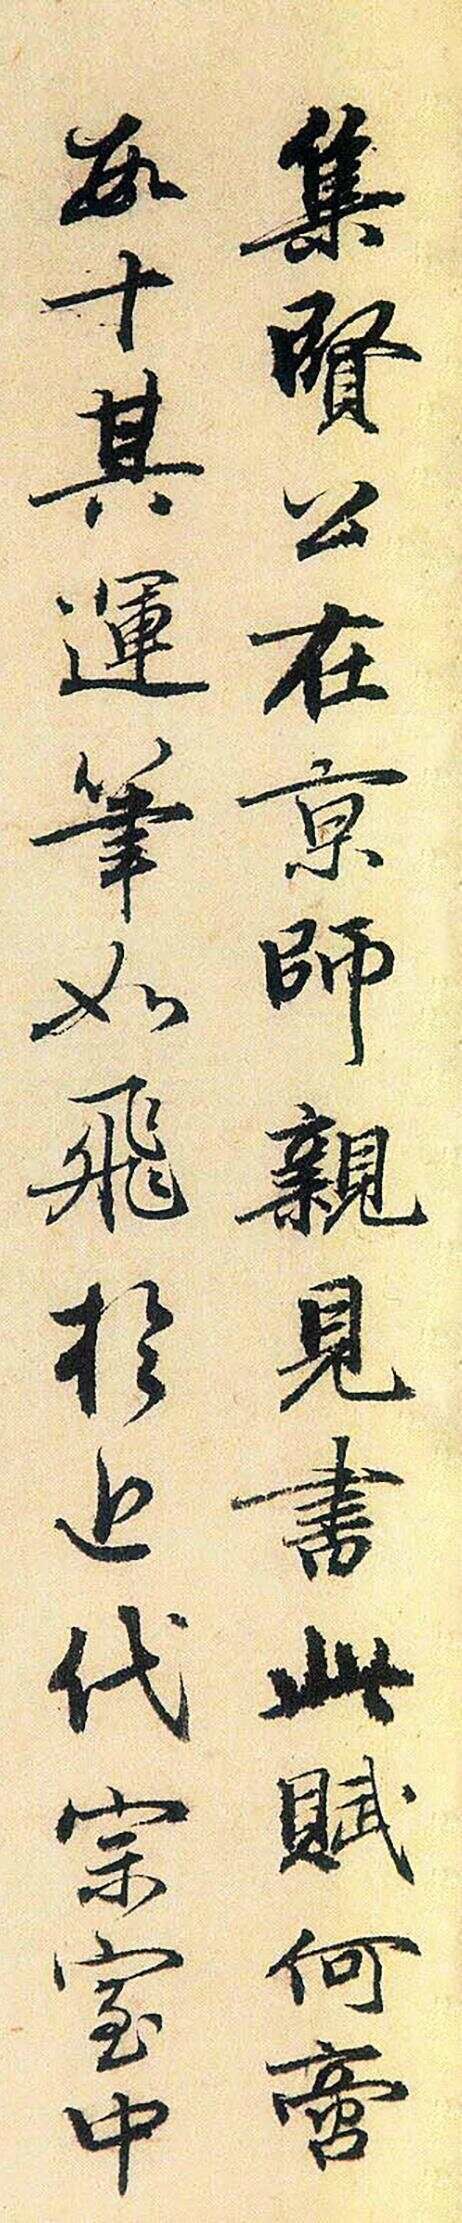 集賢公在京師親見書此賦何啻
數十其運筆如飛於近代宗室中